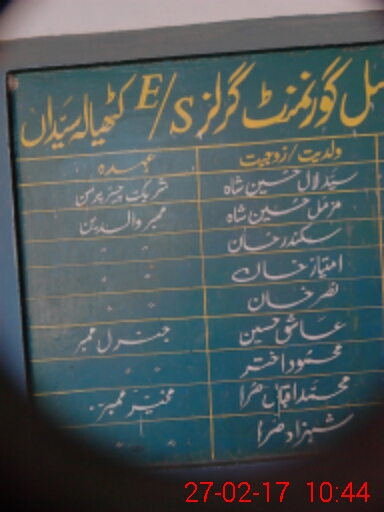 سل گورنمنٹ گرلز E/S کٹھیالہ سیداں
ولدیت/زوجیت عہدہ
سید لال حسین شاہ شریک چیئر پرسن
مزمل حسین شاہ ممبر والدین
سکندر خان " "
امتیاز خان " "
نصر خان " "
عاشق حسین جنرل ممبر
محمود اختر " "
محمد اقبال مخیر ممبر
شہزاد " "
27-02-17 10:44